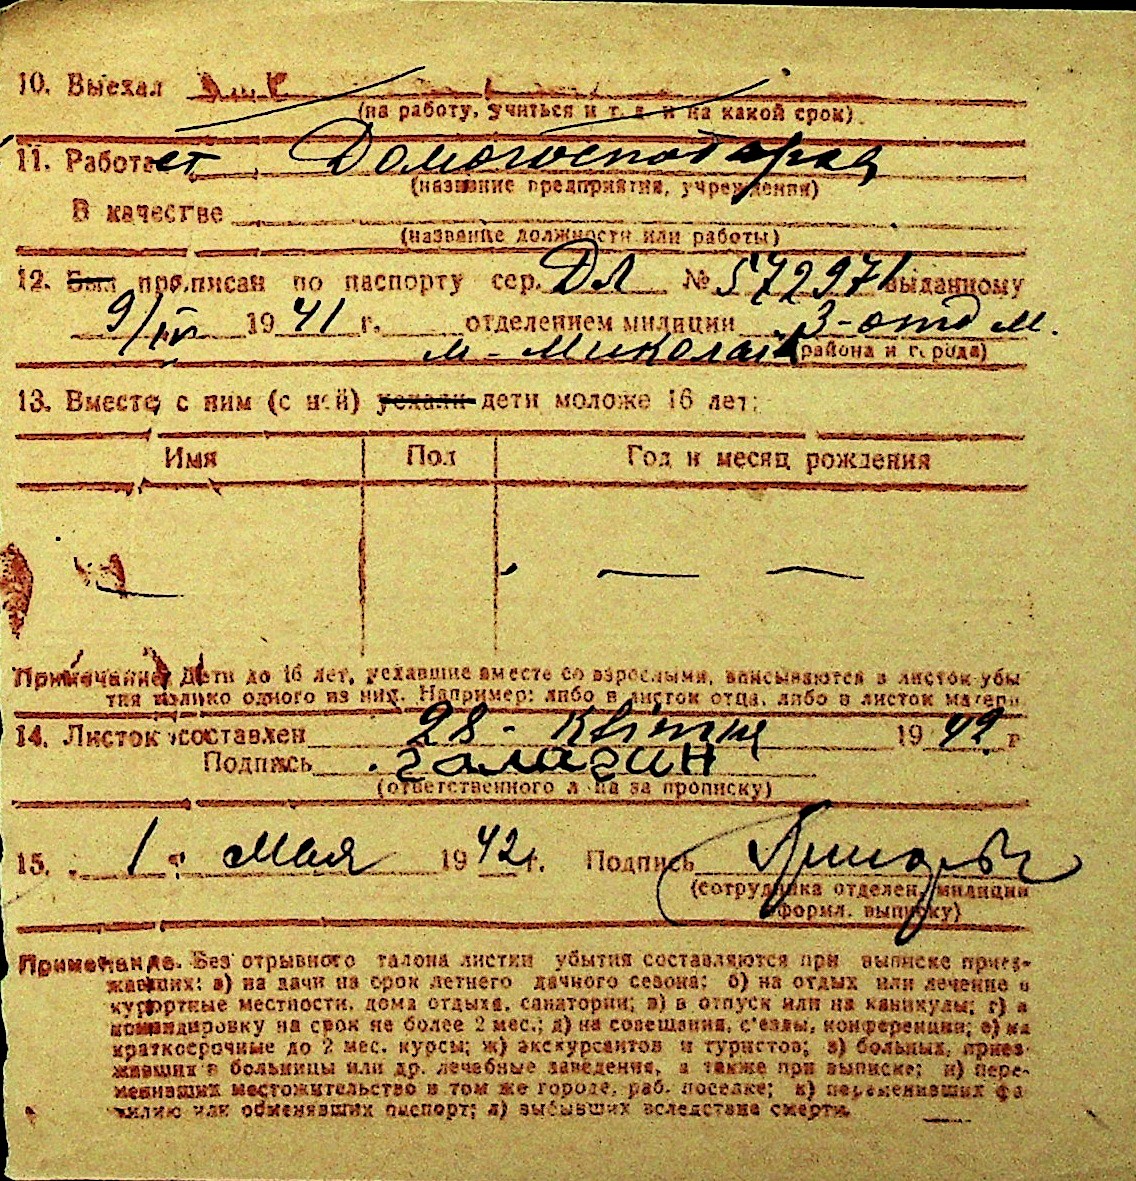 10. Выехал
(на работу, учиться и т. д. и на какой срок)
11. Работает Домогосподарка
(название предприятия, учреждения)
В качестве
(название должности или работы)
12. Был прописан по паспорту сер. ДЛ № 572971 выданному
9/IV 1941 г. отделением милиции 3-отд м.
м-Миколаїв (района и города)
13. Вместе с ним (с ней) уехали дети моложе 16 лет:
Имя Пол Год и месяц рождения
— — —
Примечание: Дети до 16 лет, уехавшие вместе со взрослыми, вписываются в листок убы
тия только одного из них. Например: либо в листок отца, либо в листок матери
14. Листок составлен 28 - Квітня 1942 г
Подпись Галагин
(ответственного лица за прописку)
15. 1 " Мая 1942 г. Подпись
(сотрудника отделен. милиции
оформл. выписку)
Примечание. Без отрывного талона листки убытия составляются при выписке приез-
жавших: а) на дачи на срок летнего дачного сезона; б) на отдых или лечение в
курортные местности, дома отдыха, санатории; в) в отпуск или на каникулы; г) в
командировку на срок не более 2 мес.; д) на совещания, с'езды, конференции; е) на
краткосрочные до 2 мес. курсы; ж) экскурсантов и туристов; з) больных, приез-
жавших в больницы или др. лечебные заведения, а также при выписке; и) пере-
менивших местожительство в том же городе, раб. поселке; к) переменивших фа
милию или обменявших паспорт; л) выбывших вследствие смерти.